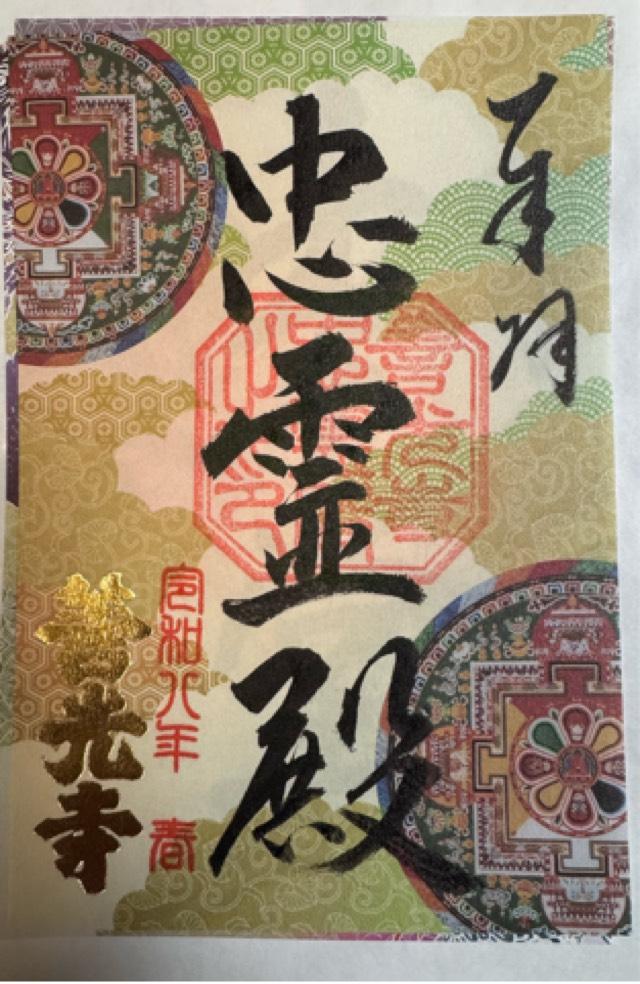 奉拝
忠霊殿
令和八年 春
善光寺